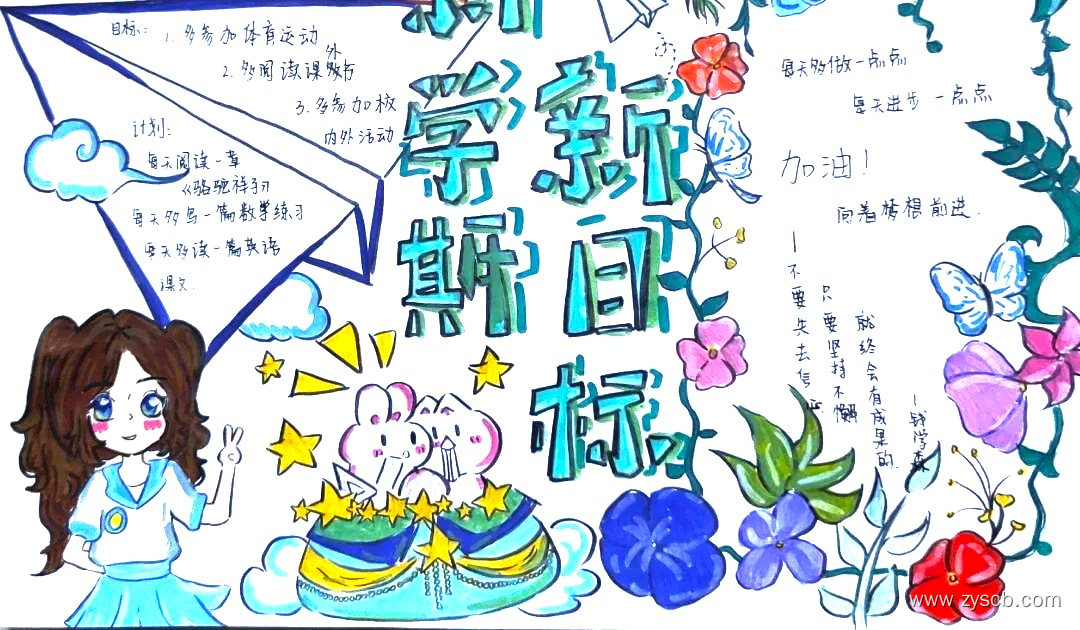 目标:
1. 多参加体育运动
2. 多阅读课外书
3. 多参加校
内外活动
计划:
每天阅读一章
《骆驼祥子》
每天多写一篇数学练习
每天多读一篇英语
课文.
新
学
期
新
目
标
每天多做一点点
每天进步一点点
加油!
向着梦想前进.
一不要失去信心
只要坚持不懈
就终会有成果的.
—钱学森
www.zyscb.com